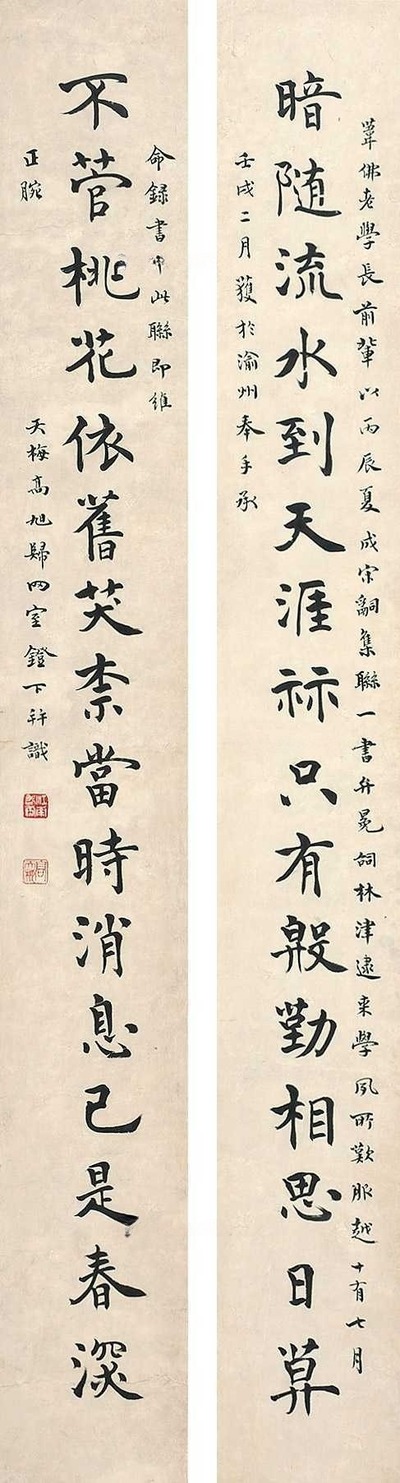 葦佛老學長前輩以丙辰夏成宋嗣集聯一書弁冕詞林津逮來學夙所歎服越十有七月
暗隨流水到天涯祘只有殷勤相思日莫
壬戌二月獲於渝州奉手承
命錄書中此聯即維
不菅桃花依舊笑柰當時消息已是春深
正腕
天梅高旭歸网室鐙下并識